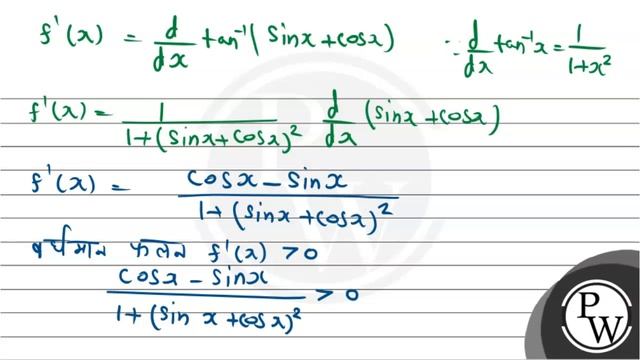 f'(x) = d/dx tan⁻¹(sinx+cosx) ∵ d/dx tan⁻¹x = 1/1+x²
f'(x) = 1/1+(sinx+cosx)² d/dx (sinx+cosx)
f'(x) = cosx - sinx/1+(sinx+cosx)²
वर्धमान फलन f'(x) > 0
cosx - sinx/1+(sin x+cosx)² > 0
PW
PW